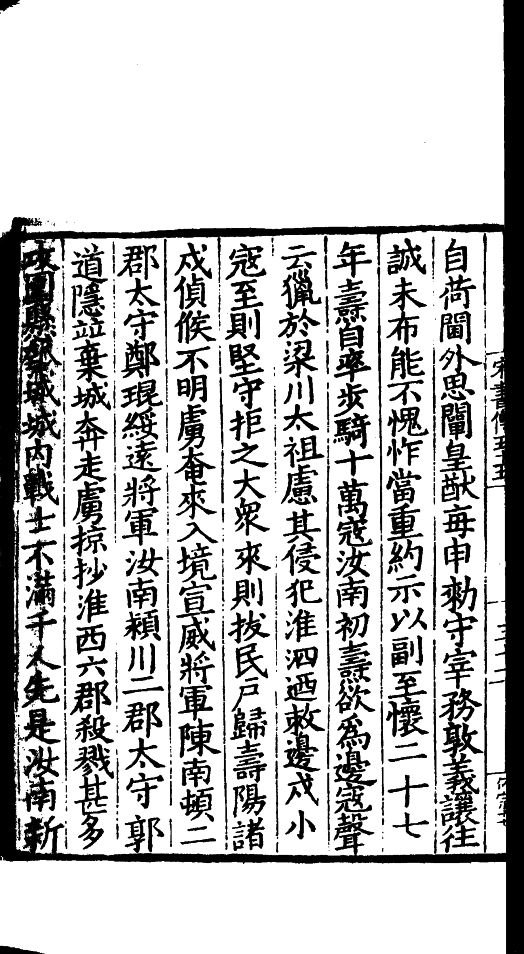 自荷閫外思闡皇猷每申勑守宰務敦義讓往
誠未布能不愧怍當重約示以副至懷二十七
年燾自率步騎十萬寇汝南初燾欲為邊寇聲
云獵於梁川太祖慮其侵犯淮泗廼敕邊戍小
寇至則堅守拒之大衆來則拔民戶歸壽陽諸
戍偵候不明虜奄來入境宣威將軍陳南頓二
郡太守鄭琨綏遠將軍汝南潁川二郡太守郭
道隱竝棄城奔走虜掠抄淮西六郡殺戮甚多
攻圍懸瓠城城內戰士不滿千人先是汝南新